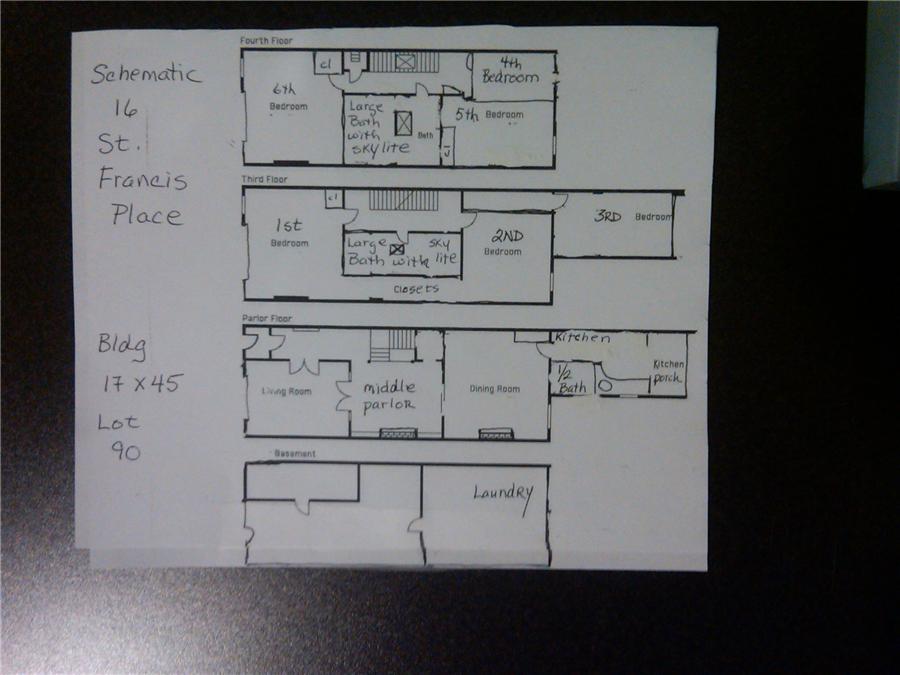 Schematic
16
St.
Francis
Place
Bldg
17 x 45
Lot
90
Fourth Floor
cl
6th
Bedroom
4th
Bedroom
5th Bedroom
Large
Bath
with
skylite
Bath
Third Floor
cl
1st
Bedroom
Large sky
Bath with lite
2ND
Bedroom
3RD Bedroom
Closets
Parlor Floor
Living Room
middle
parlor
Dining Room
Kitchen
1/2
Bath
Kitchen
porch
Basement
Laundry